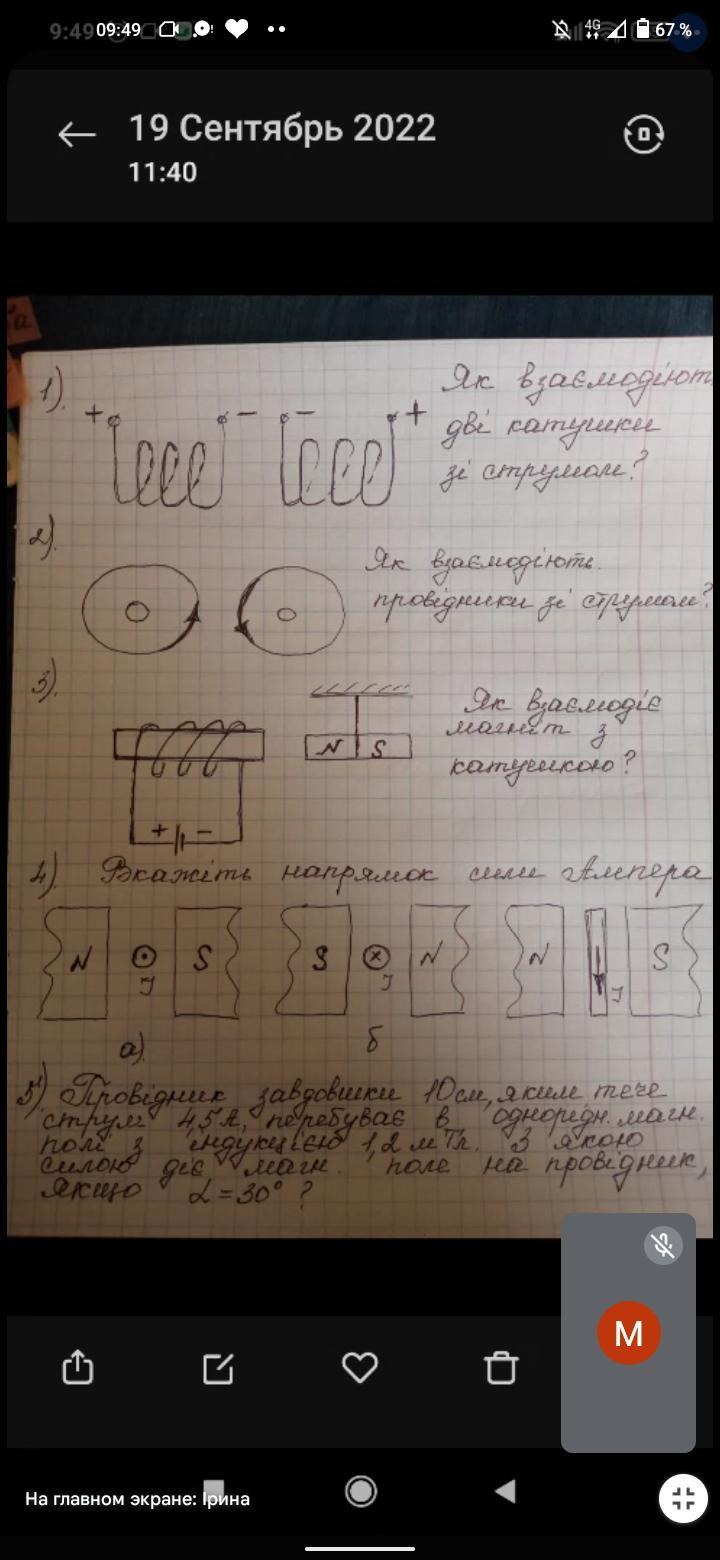 9:49 09:49 4G 67 %
19 Сентябрь 2022
11:40
1). + - - + Як взаємодіють
дві катушки
зі струмом?
2). Як взаємодіють
провідники зі струмом?
3). Як взаємодіє
магніт з
катушкою?
N S
+ -
4). Вкажіть напрямок сили Ампера
N I S S I N N I S
а). б
5) Провідник завдовшки 10см, яким тече
струм 4,5А, перебуває в однорідн. магн.
полі з індукцією 1,2 мТл. З якою
силою діє магн. поле на провідник,
якщо α = 30° ?
M
На главном экране: Ірина